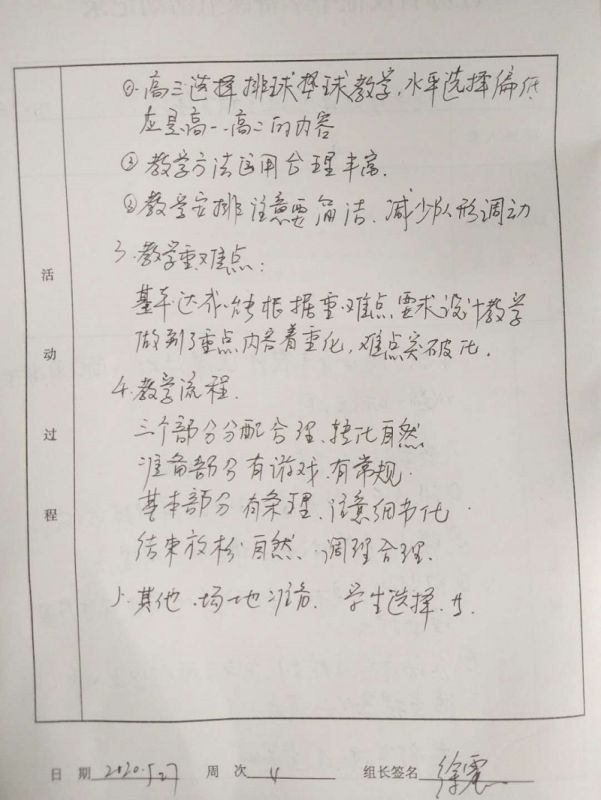 ②. 高三选择排球垫球教学,水平选择偏低
应是高一、高二的内容
③ 教学方法运用合理丰富.
④ 教学安排注意要简洁、减少队形调动
3. 教学重难点:
基本达成,能根据重难点要求设计教学
做到了重点内容着重化,难点突破化.
4. 教学流程.
三个部分分配合理、转化自然
准备部分有游戏.有常规.
基本部分有条理、注意细节化.
结束放松自然、调理合理.
5. 其他.场地准备. 学生选择.
活动过程
日 期 2020.5.27 周 次 组长签名 徐震